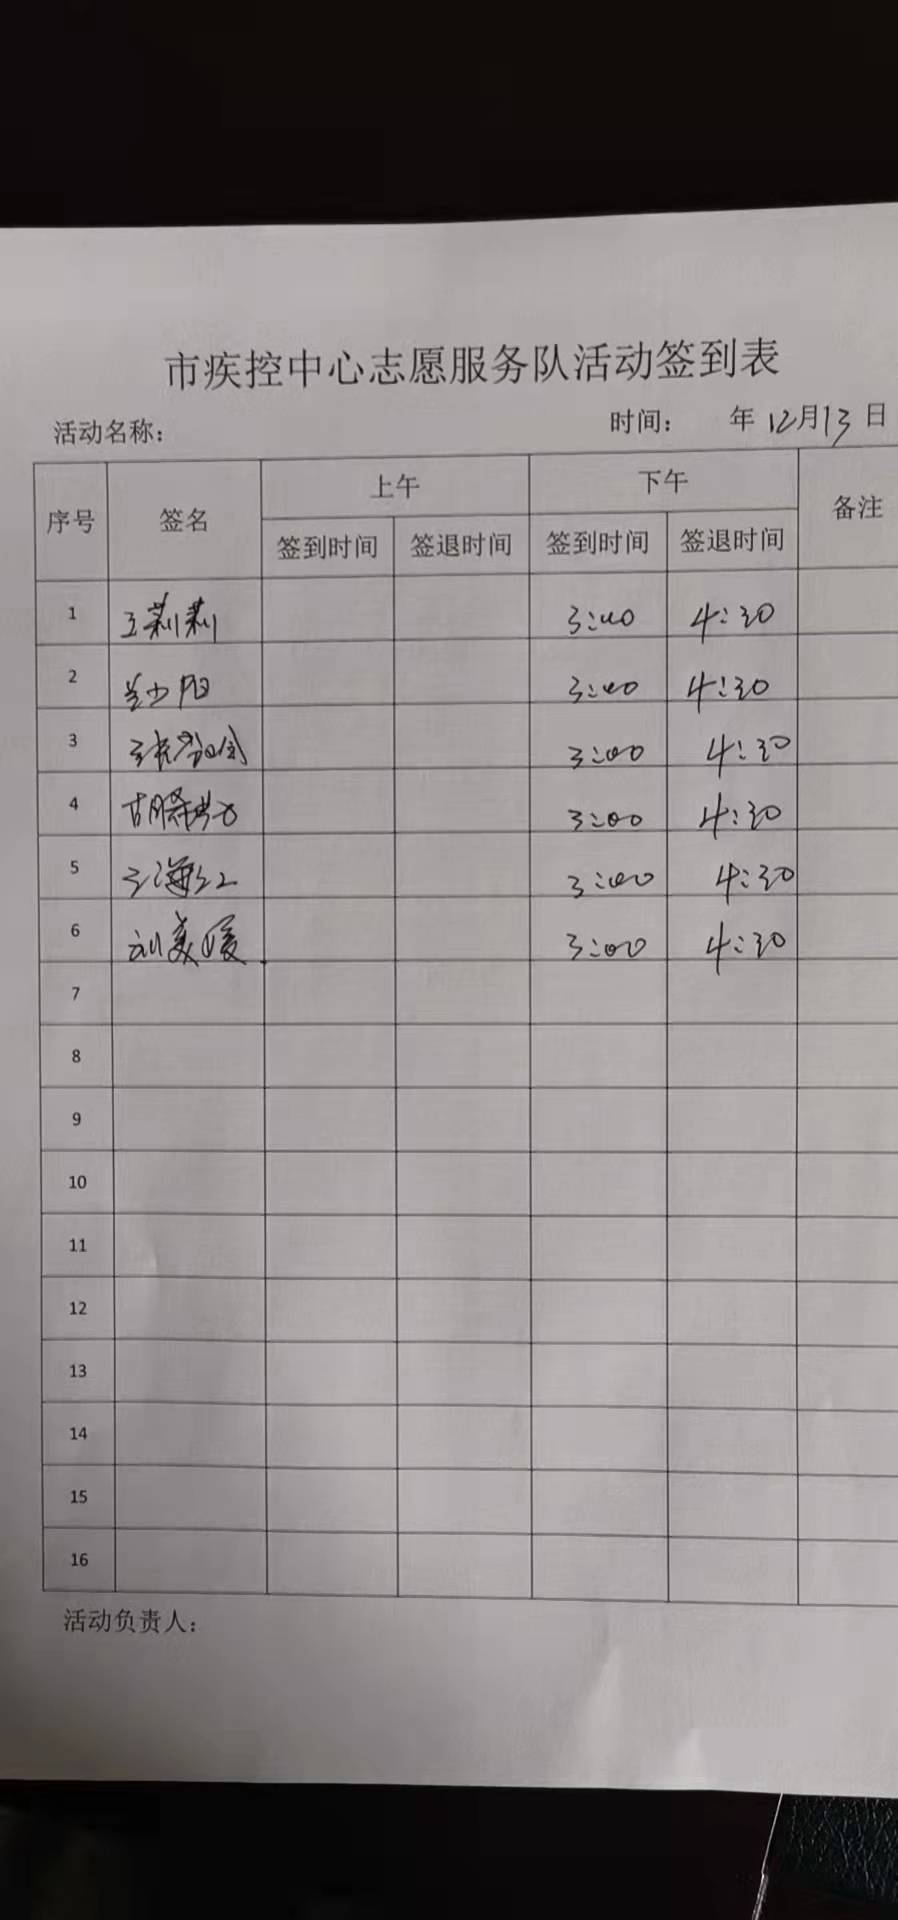 市疾控中心志愿服务队活动签到表
活动名称： 时间： 年 12月13日
序号 签名 上午 下午 备注
签到时间 签退时间 签到时间 签退时间
1 王莉莉 3:00 4:30
2 3:00 4:30
3 3:00 4:30
4 3:00 4:30
5 王海红 3:00 4:30
6 刘美媛 3:00 4:30
7
8
9
10
11
12
13
14
15
16
活动负责人：